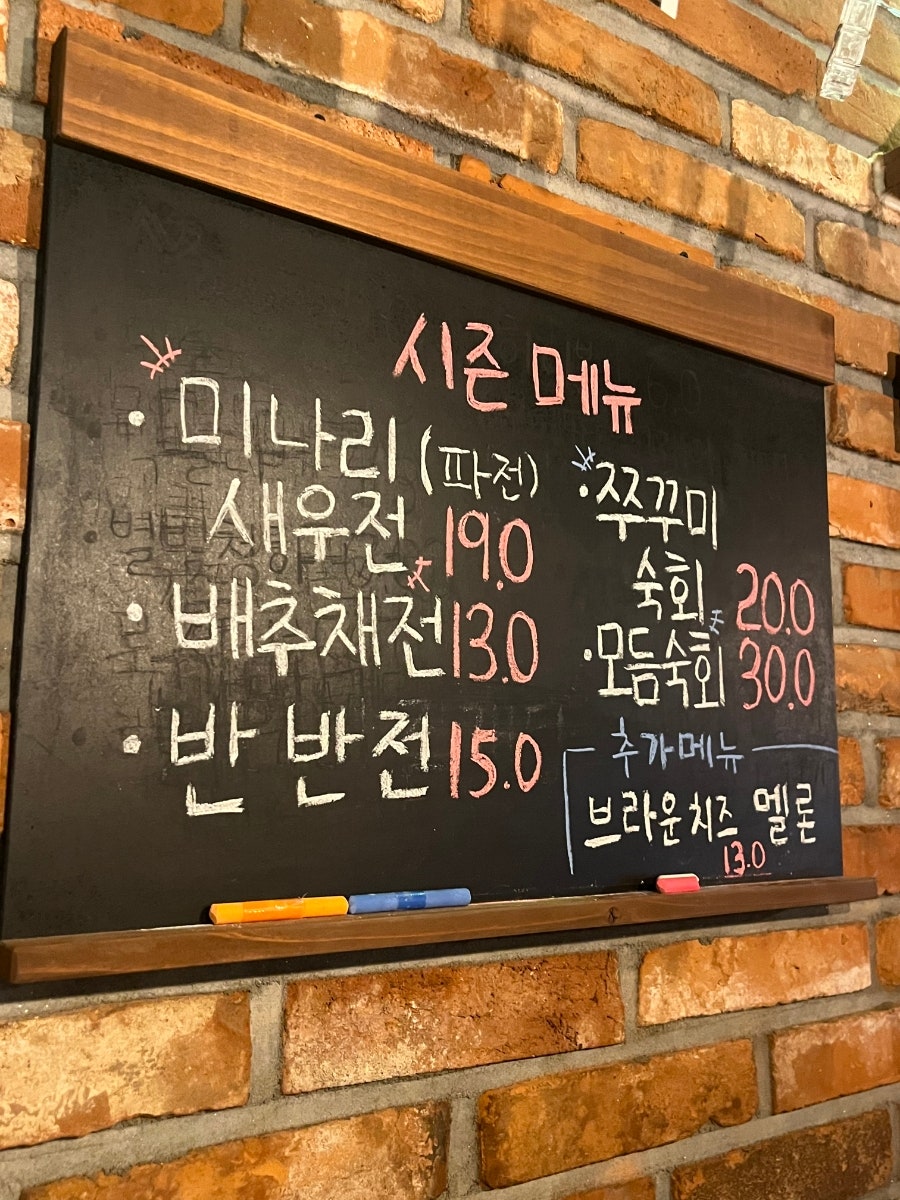 시즌 메뉴
· 미나리 (파전)
새우전 19.0
· 배추채전 13.0
· 반반전 15.0
· 쭈꾸미
숙회 20.0
· 모듬숙회 30.0
추가메뉴
브라운치즈 멜론
13.0